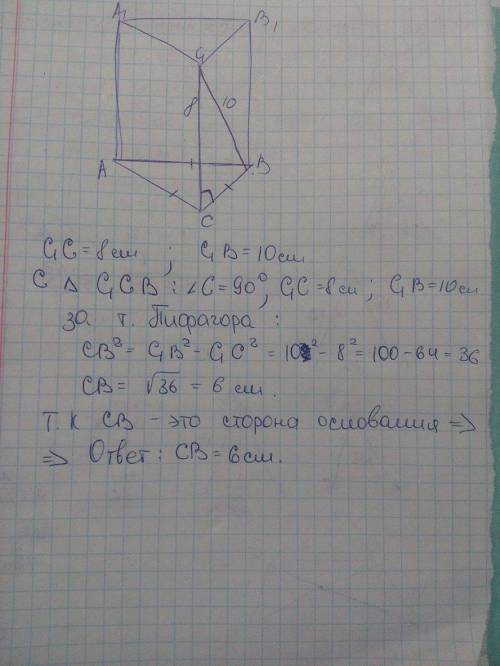 A₁ B₁
C₁
8 10
A B
C
C₁C = 8 см ; C₁B = 10 см
С Δ C₁CB : ∠C = 90°, C₁C = 8 см ; C₁B = 10 см
За т. Пифагора :
CB² = C₁B² - C₁C² = 10² - 8² = 100 - 64 = 36
CB = √36 = 6 см.
Т.к CB - это сторона основания =>
=> Ответ : CB = 6 см.